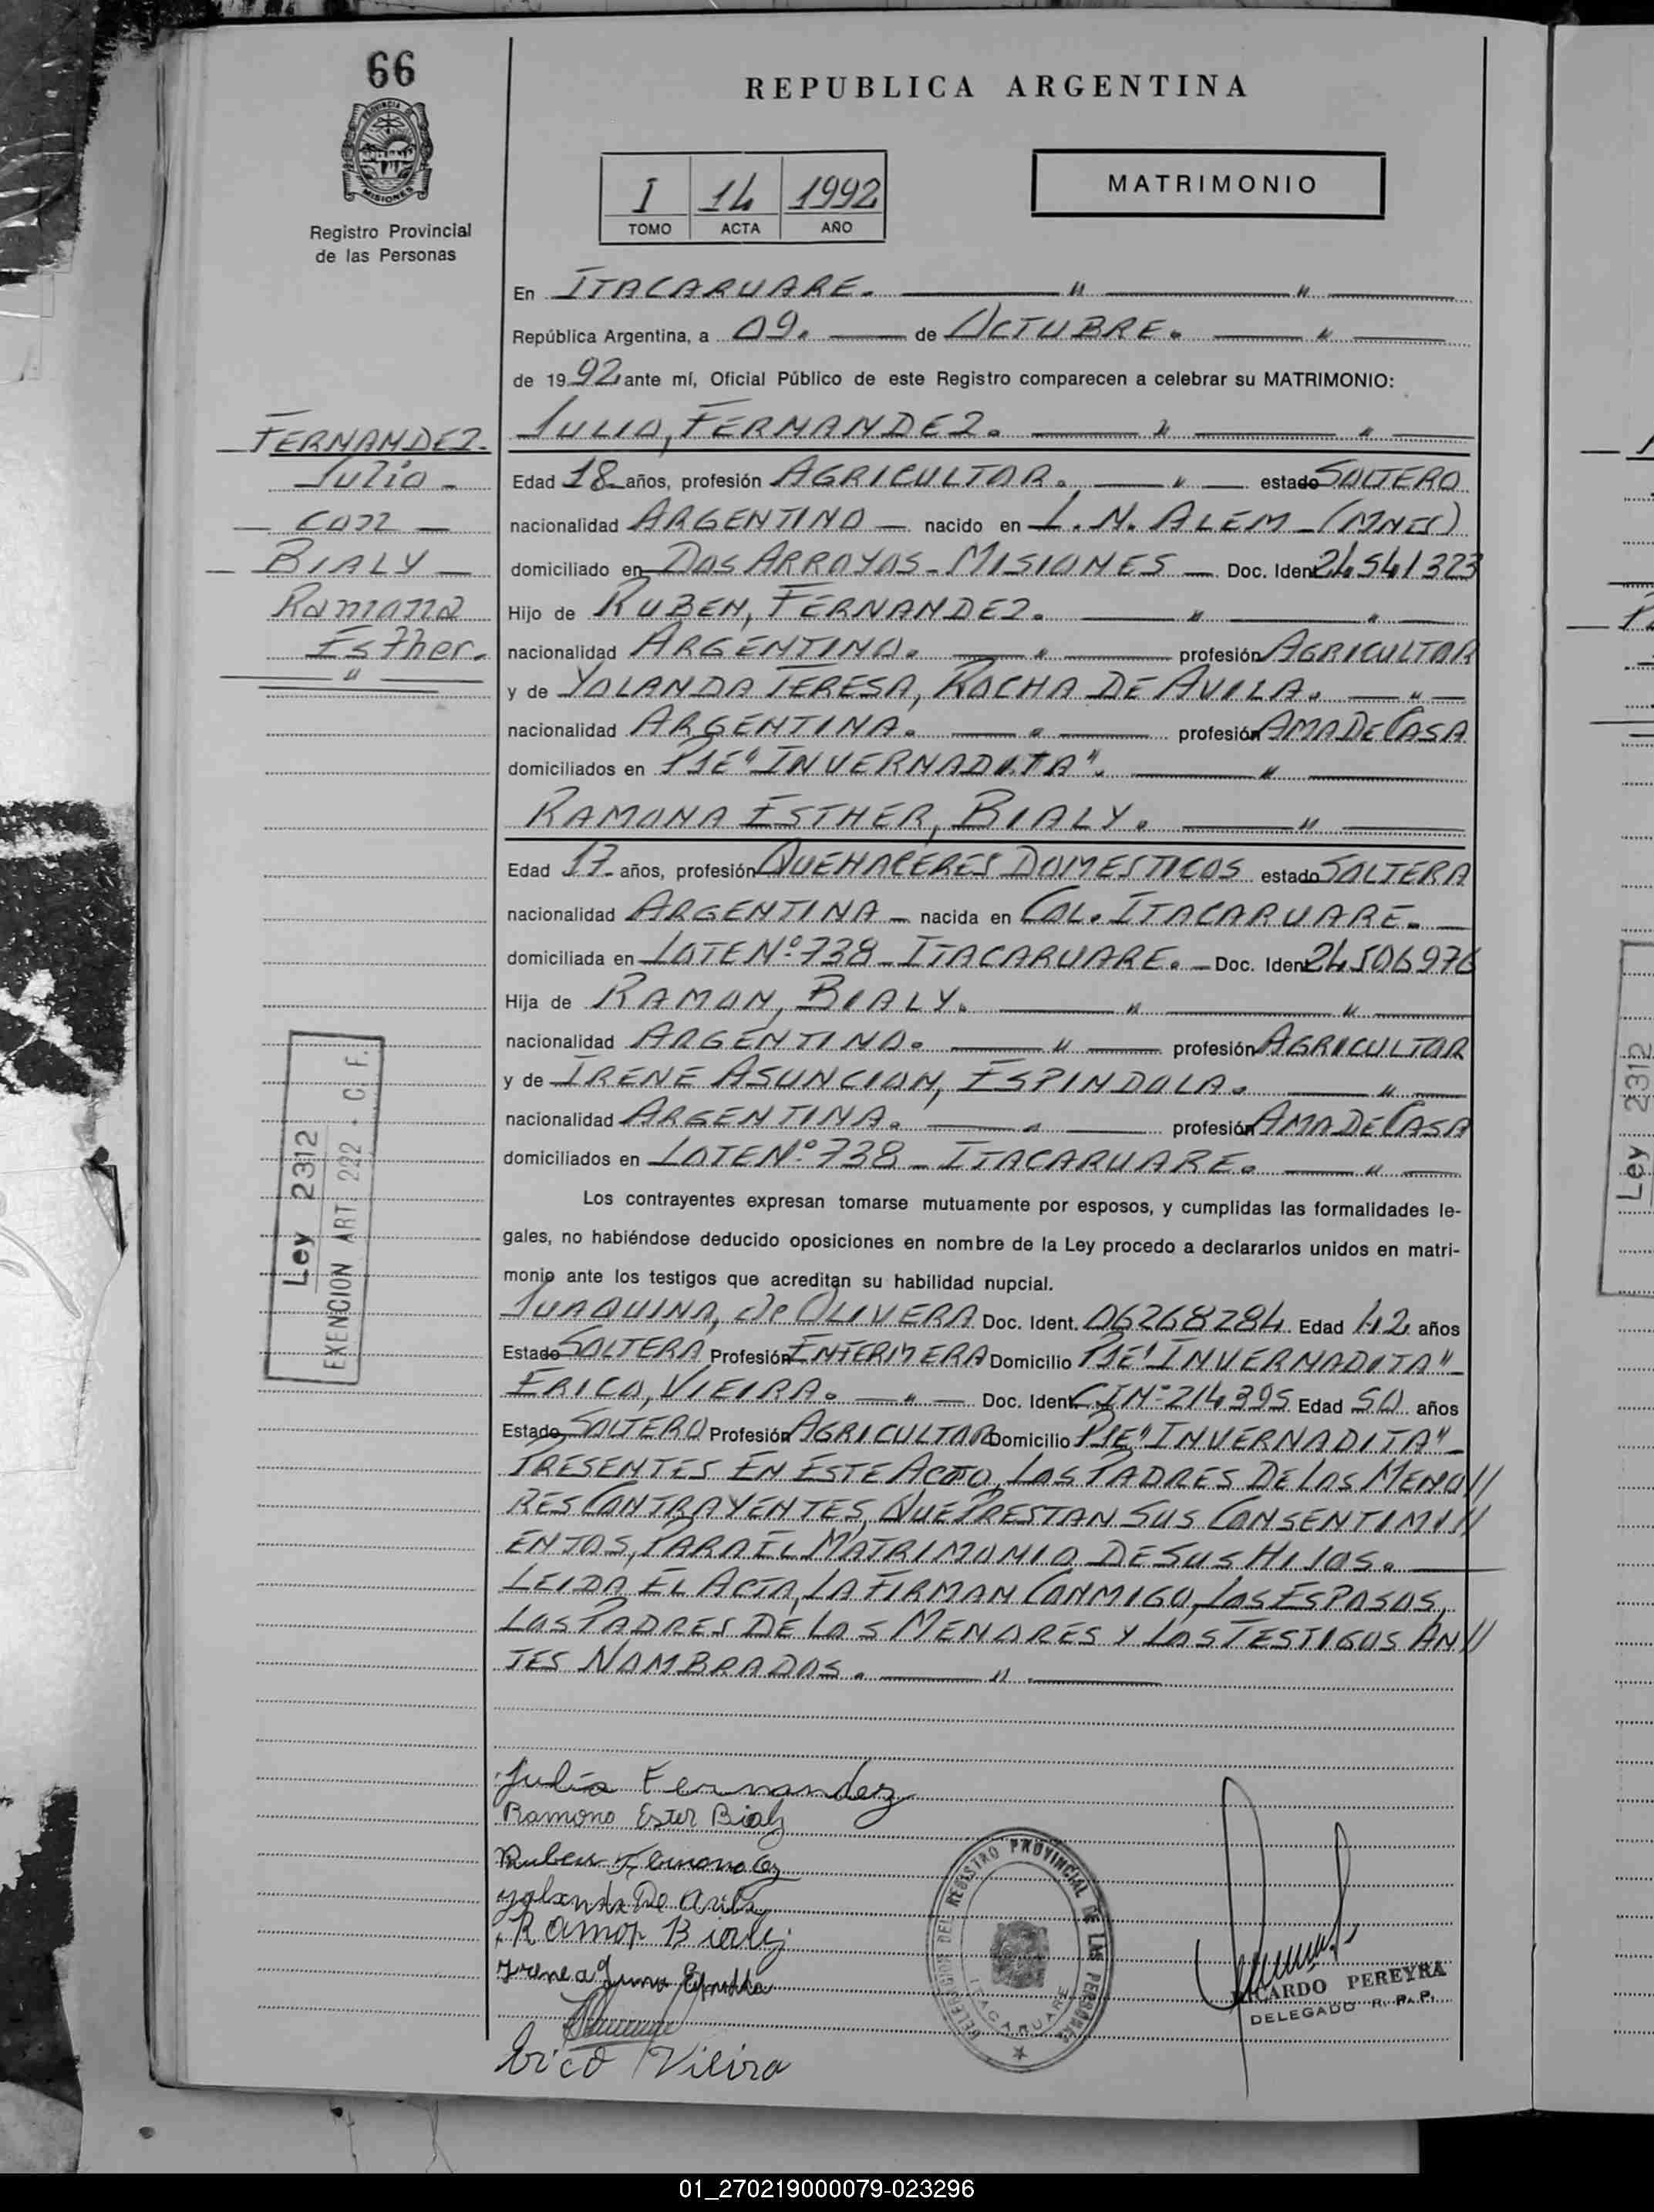 66
REPUBLICA ARGENTINA
PROVINCIA DE
MISIONES
Registro Provincial
de las Personas
I 14 1992
TOMO ACTA AÑO
MATRIMONIO
En ITACARUARE. " "
República Argentina, a 09. de OCTUBRE. "
de 1992 ante mí, Oficial Público de este Registro comparecen a celebrar su MATRIMONIO:
JULIO, FERNANDEZ. " "
FERNANDEZ.
Julio
con
BIALY
Ramona
Esther.
"
Edad 18 años, profesión AGRICULTOR. " estado SOLTERO
nacionalidad ARGENTINO nacido en L. N. ALEM - (MNES)
domiciliado en DOS ARROYOS - MISIONES Doc. Iden 24541323
Hijo de RUBEN, FERNANDEZ. " "
nacionalidad ARGENTINO. " profesión AGRICULTOR
y de YOLANDA TERESA, ROCHA DE AVILA. "
nacionalidad ARGENTINA. " profesión AMA DE CASA
domiciliados en PJE "INVERNADITA". "
RAMONA ESTHER, BIALY. "
Edad 17 años, profesión QUEHACERES DOMESTICOS estado SOLTERA
nacionalidad ARGENTINA nacida en COL. ITACARUARE.
domiciliada en LOTE Nº 738 - ITACARUARE. Doc. Iden 24506976
Hija de RAMON, BIALY. " "
nacionalidad ARGENTINO. " profesión AGRICULTOR
y de IRENE ASUNCION, ESPINDOLA. "
nacionalidad ARGENTINA. " profesión AMA DE CASA
domiciliados en LOTE Nº 738 - ITACARUARE. "
Los contrayentes expresan tomarse mutuamente por esposos, y cumplidas las formalidades le-
gales, no habiéndose deducido oposiciones en nombre de la Ley procedo a declararlos unidos en matri-
monio ante los testigos que acreditan su habilidad nupcial.
JUAQUINA, de OLIVERA Doc. Ident. 06268284 Edad 42 años
Estado SOLTERA Profesión ENFERMERA Domicilio PJE "INVERNADITA"
ERICO, VIEIRA. " Doc. Ident. CI Nº 214395 Edad 50 años
Estado SOLTERO Profesión AGRICULTOR Domicilio PJE "INVERNADITA"
PRESENTES EN ESTE ACTO, LOS PADRES DE LOS MENO//
RES CONTRAYENTES, QUE PRESTAN SUS CONSENTIMI//
ENTOS, PARA EL MATRIMONIO DE SUS HIJOS.
LEIDA EL ACTA, LA FIRMAN CONMIGO, LOS ESPOSOS,
LOS PADRES DE LOS MENORES Y LOS TESTIGOS AN//
TES NOMBRADOS. "
Ley 2312
EXENCION ART. 222 - C. F.
Julio Fernandez
Ramona Ester Bialy
Ruben Fernandez
Yolanda De Avila
Ramon Bialy
Erico Vieira
DELEGACION DEL REGISTRO PROVINCIAL DE LAS PERSONAS
ITACARUARE
RICARDO PEREYRA
DELEGADO R. P. P.
Ley 2312
01_270219000079-023296